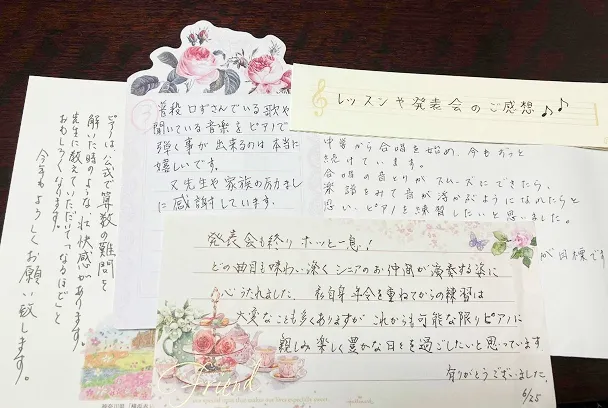 レッスンや発表会のご感想♪♪
③
普段口ずさんでいる歌や
聞いている音楽をピアノで
弾く事が出来るのは本当に
嬉しいです。
又先生や家族の励ましに
に感謝しています。
中学から合唱を始め、今もずっと
続けています。
合唱の音とりがスムーズにできたら、
楽譜をみて音が浮かぶようになれたらと
思い、ピアノを練習したいと思いました。
が目標です
ピアノは公式で算数の難問を
解いた時のような壮快感があります。
先生に教えていただいて「なるほど」と
おもしろくなります。
今年もよろしくお願い致します。
発表会も終りホッと一息!
どの曲目も味わい深くシニアのお仲間が演奏する姿に
心うたれました。私自身年令を重ねてからの練習は
大変なことも多くありますがこれからも可能な限りピアノに
親しみ楽しく豊かな日々を過ごしたいと思っています
有りがとうございました。
6/25
Friend